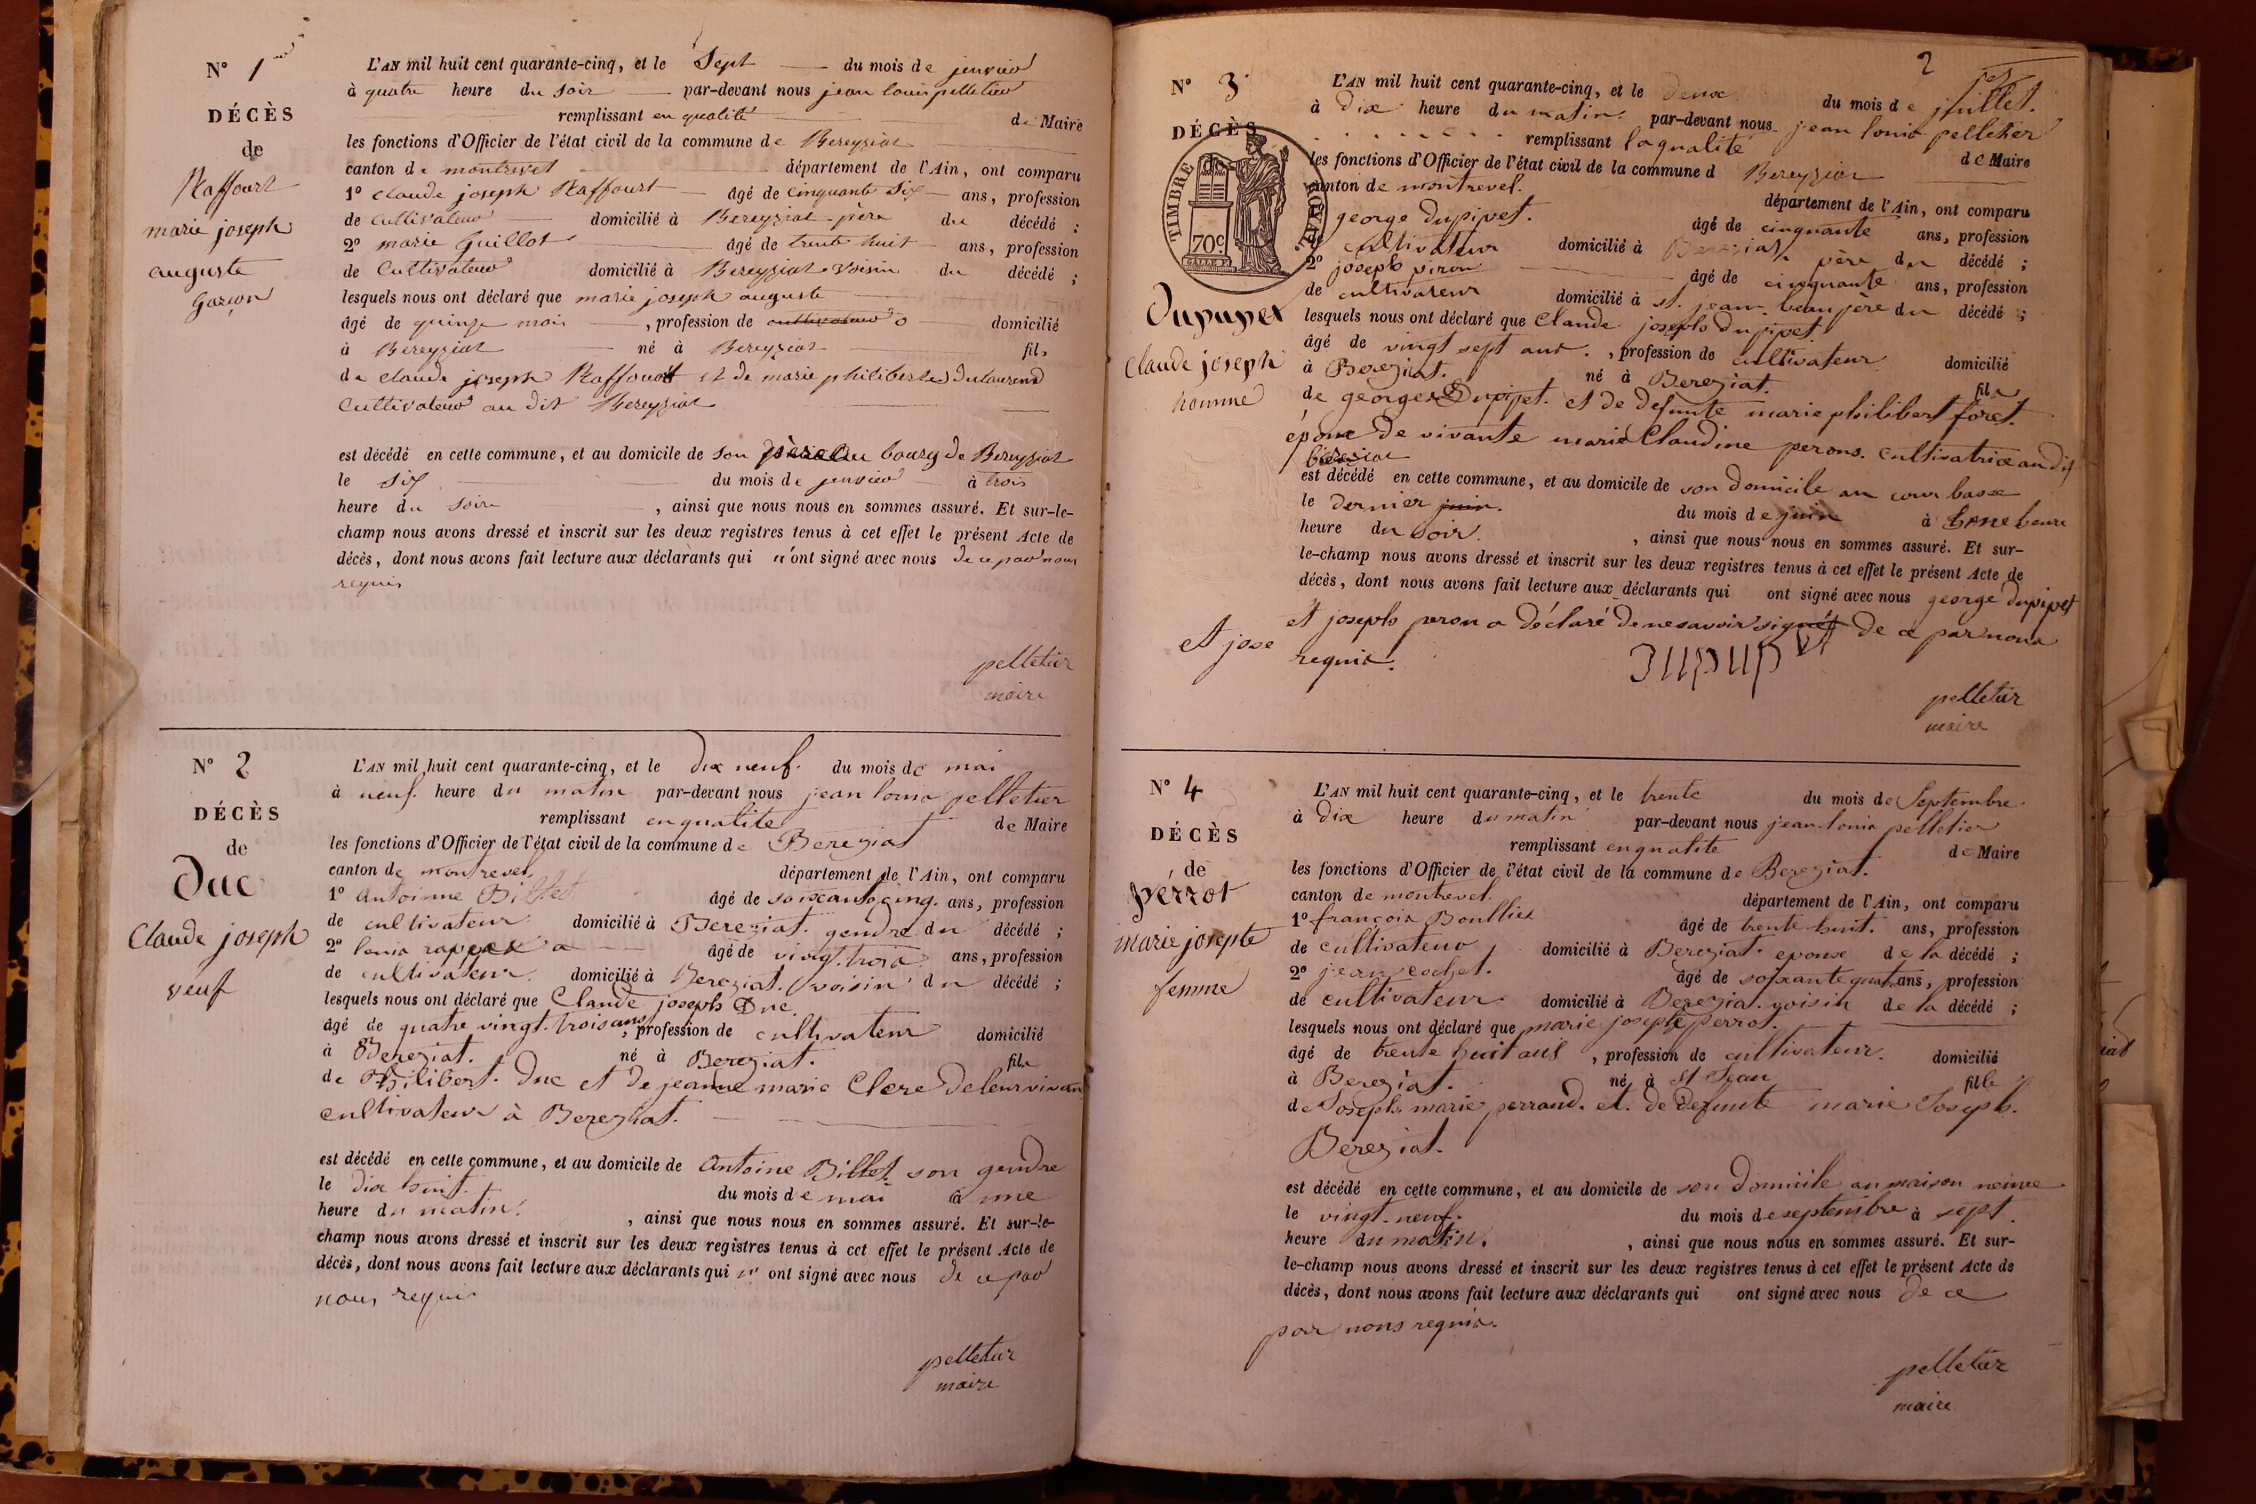 N° 1
DÉCÈS
de
Raffourt
marie joseph
auguste
garçon
L'AN mil huit cent quarante-cinq, et le Sept du mois de janvier
à quatre heure du soir par-devant nous jean louis pelletier
remplissant en qualité de Maire
les fonctions d'Officier de l'état civil de la commune de Bereyziat
canton de montrevel département de l'Ain, ont comparu
1° Claude joseph Raffourt âgé de cinquante six ans, profession
de Cultivateur domicilié à Bereyziat père du décédé ;
2° marie Guillot âgé de trente huit ans, profession
de Cultivateur domicilié à Bereyziat voisin du décédé ;
lesquels nous ont déclaré que marie joseph auguste
âgé de quinze mois , profession de cultivateur o domicilié
à Bereyziat né à Bereyziat fils
de claude joseph Raffourt et de marie philiberte dulaurend
Cultivateur au dit Bereyziat
est décédé en cette commune, et au domicile de son père au bourg de Bereyziat
le six du mois de janvier à trois
heure du soir , ainsi que nous nous en sommes assuré. Et sur-le-
champ nous avons dressé et inscrit sur les deux registres tenus à cet effet le présent Acte de
décès, dont nous avons fait lecture aux déclarants qui n'ont signé avec nous de ce par nous
requis
pelletier
maire
N° 2
DÉCÈS
de
Duc
Claude joseph
veuf
L'AN mil huit cent quarante-cinq, et le dix neuf. du mois de mai
à neuf. heure du matin par-devant nous jean louis pelletier
remplissant en qualité de Maire
les fonctions d'Officier de l'état civil de la commune de Bereziat
canton de montrevel département de l'Ain, ont comparu
1° Antoinne Billet âgé de soixante cinq. ans, profession
de cultivateur domicilié à Bereziat. gendre du décédé ;
2° louis âgé de vingt. trois ans, profession
de cultivateur. domicilié à Bereziat. voisin du décédé ;
lesquels nous ont déclaré que Claude joseph Duc.
âgé de quatre vingt. trois ans , profession de cultivateur domicilié
à Bereziat. né à Bereziat. fils
de Philibert. Duc et de jeanne marie Clere de leur vivan
cultivateur à Bereziat.
est décédé en cette commune, et au domicile de Antoine Billet. son gendre
le dix huit. du mois de mai à une
heure du matin. , ainsi que nous nous en sommes assuré. Et sur-le-
champ nous avons dressé et inscrit sur les deux registres tenus à cet effet le présent Acte de
décès, dont nous avons fait lecture aux déclarants qui n' ont signé avec nous de ce par
nous requis
pelletier
maire
2
N° 3
DÉCÈS
de
TIMBRE ROYAL
70c
Dupupet
Claude joseph
homme
L'AN mil huit cent quarante-cinq, et le deux du mois de juillet.
à dix heure du matin. par-devant nous jean louis pelletier
remplissant la qualité de Maire
les fonctions d'Officier de l'état civil de la commune d Bereyziat
canton de montrevel. département de l'Ain, ont comparu
george dupipet. âgé de cinquante ans, profession
de cultivateur domicilié à Bereziat père du décédé ;
2° joseph peron âgé de cinquante ans, profession
de cultivateur domicilié à st. jean. beau père du décédé ;
lesquels nous ont déclaré que Claude joseph dupipet.
âgé de vingt sept ans. , profession de cultivateur domicilié
à Bereziat. né à Bereziat. fils
de georges Dupipet. et de defunte marie philibert foret.
epoux de vivante marie Claudine perons. cultivatrice au dit
bereziat
est décédé en cette commune, et au domicile de son domicile au cour basse
le dernier juin. du mois de juin à heure
heure du soir. , ainsi que nous nous en sommes assuré. Et sur-
le-champ nous avons dressé et inscrit sur les deux registres tenus à cet effet le présent Acte de
décès, dont nous avons fait lecture aux déclarants qui ont signé avec nous george dupipet
et jose
et joseph peron a déclaré de ne savoir signer de ce par nous
requis.
Dupupet
pelletier
maire
N° 4
DÉCÈS
de
perrot
marie josepte
femme
L'AN mil huit cent quarante-cinq, et le trente du mois de Septembre.
à dix heure du matin par-devant nous jean louis pelletier
remplissant en qualité de Maire
les fonctions d'Officier de l'état civil de la commune de Bereziat.
canton de montrevel. département de l'Ain, ont comparu
1° françois Boullier âgé de trente huit. ans, profession
de cultivateur domicilié à Bereziat. epoux de la décédé ;
2° jean cochet. âgé de soixante quatre ans, profession
de cultivateur. domicilié à Bereziat. voisin de la décédé ;
lesquels nous ont déclaré que marie josepte perrot.
âgé de trente huit ans , profession de cultivateur. domicilié
à Bereziat. né à St Jean fille
de Joseph. marie perraud. et. de defunte marie Joseph.
Bereziat.
est décédé en cette commune, et au domicile de son domicile au maison neuve
le vingt. neuf. du mois de septembre à sept.
heure du matin. , ainsi que nous nous en sommes assuré. Et sur-
le-champ nous avons dressé et inscrit sur les deux registres tenus à cet effet le présent Acte de
décès, dont nous avons fait lecture aux déclarants qui ont signé avec nous de ce
par nous requis.
pelletier
maire